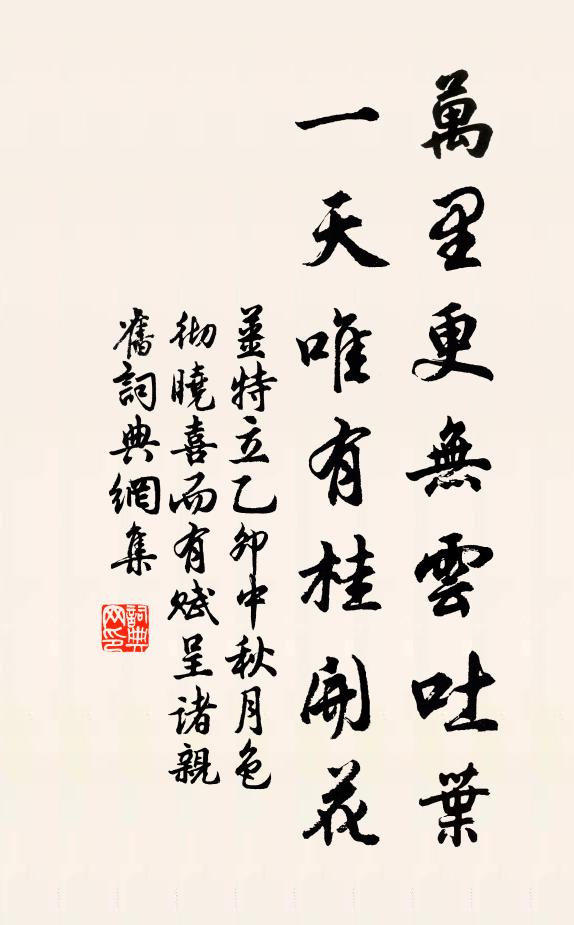 萬里更無雲吐葉
一天唯有桂開花
姜特立乙卯中秋月色
彻曉喜而有赋呈诸親
舊詞典網集
詞典網印